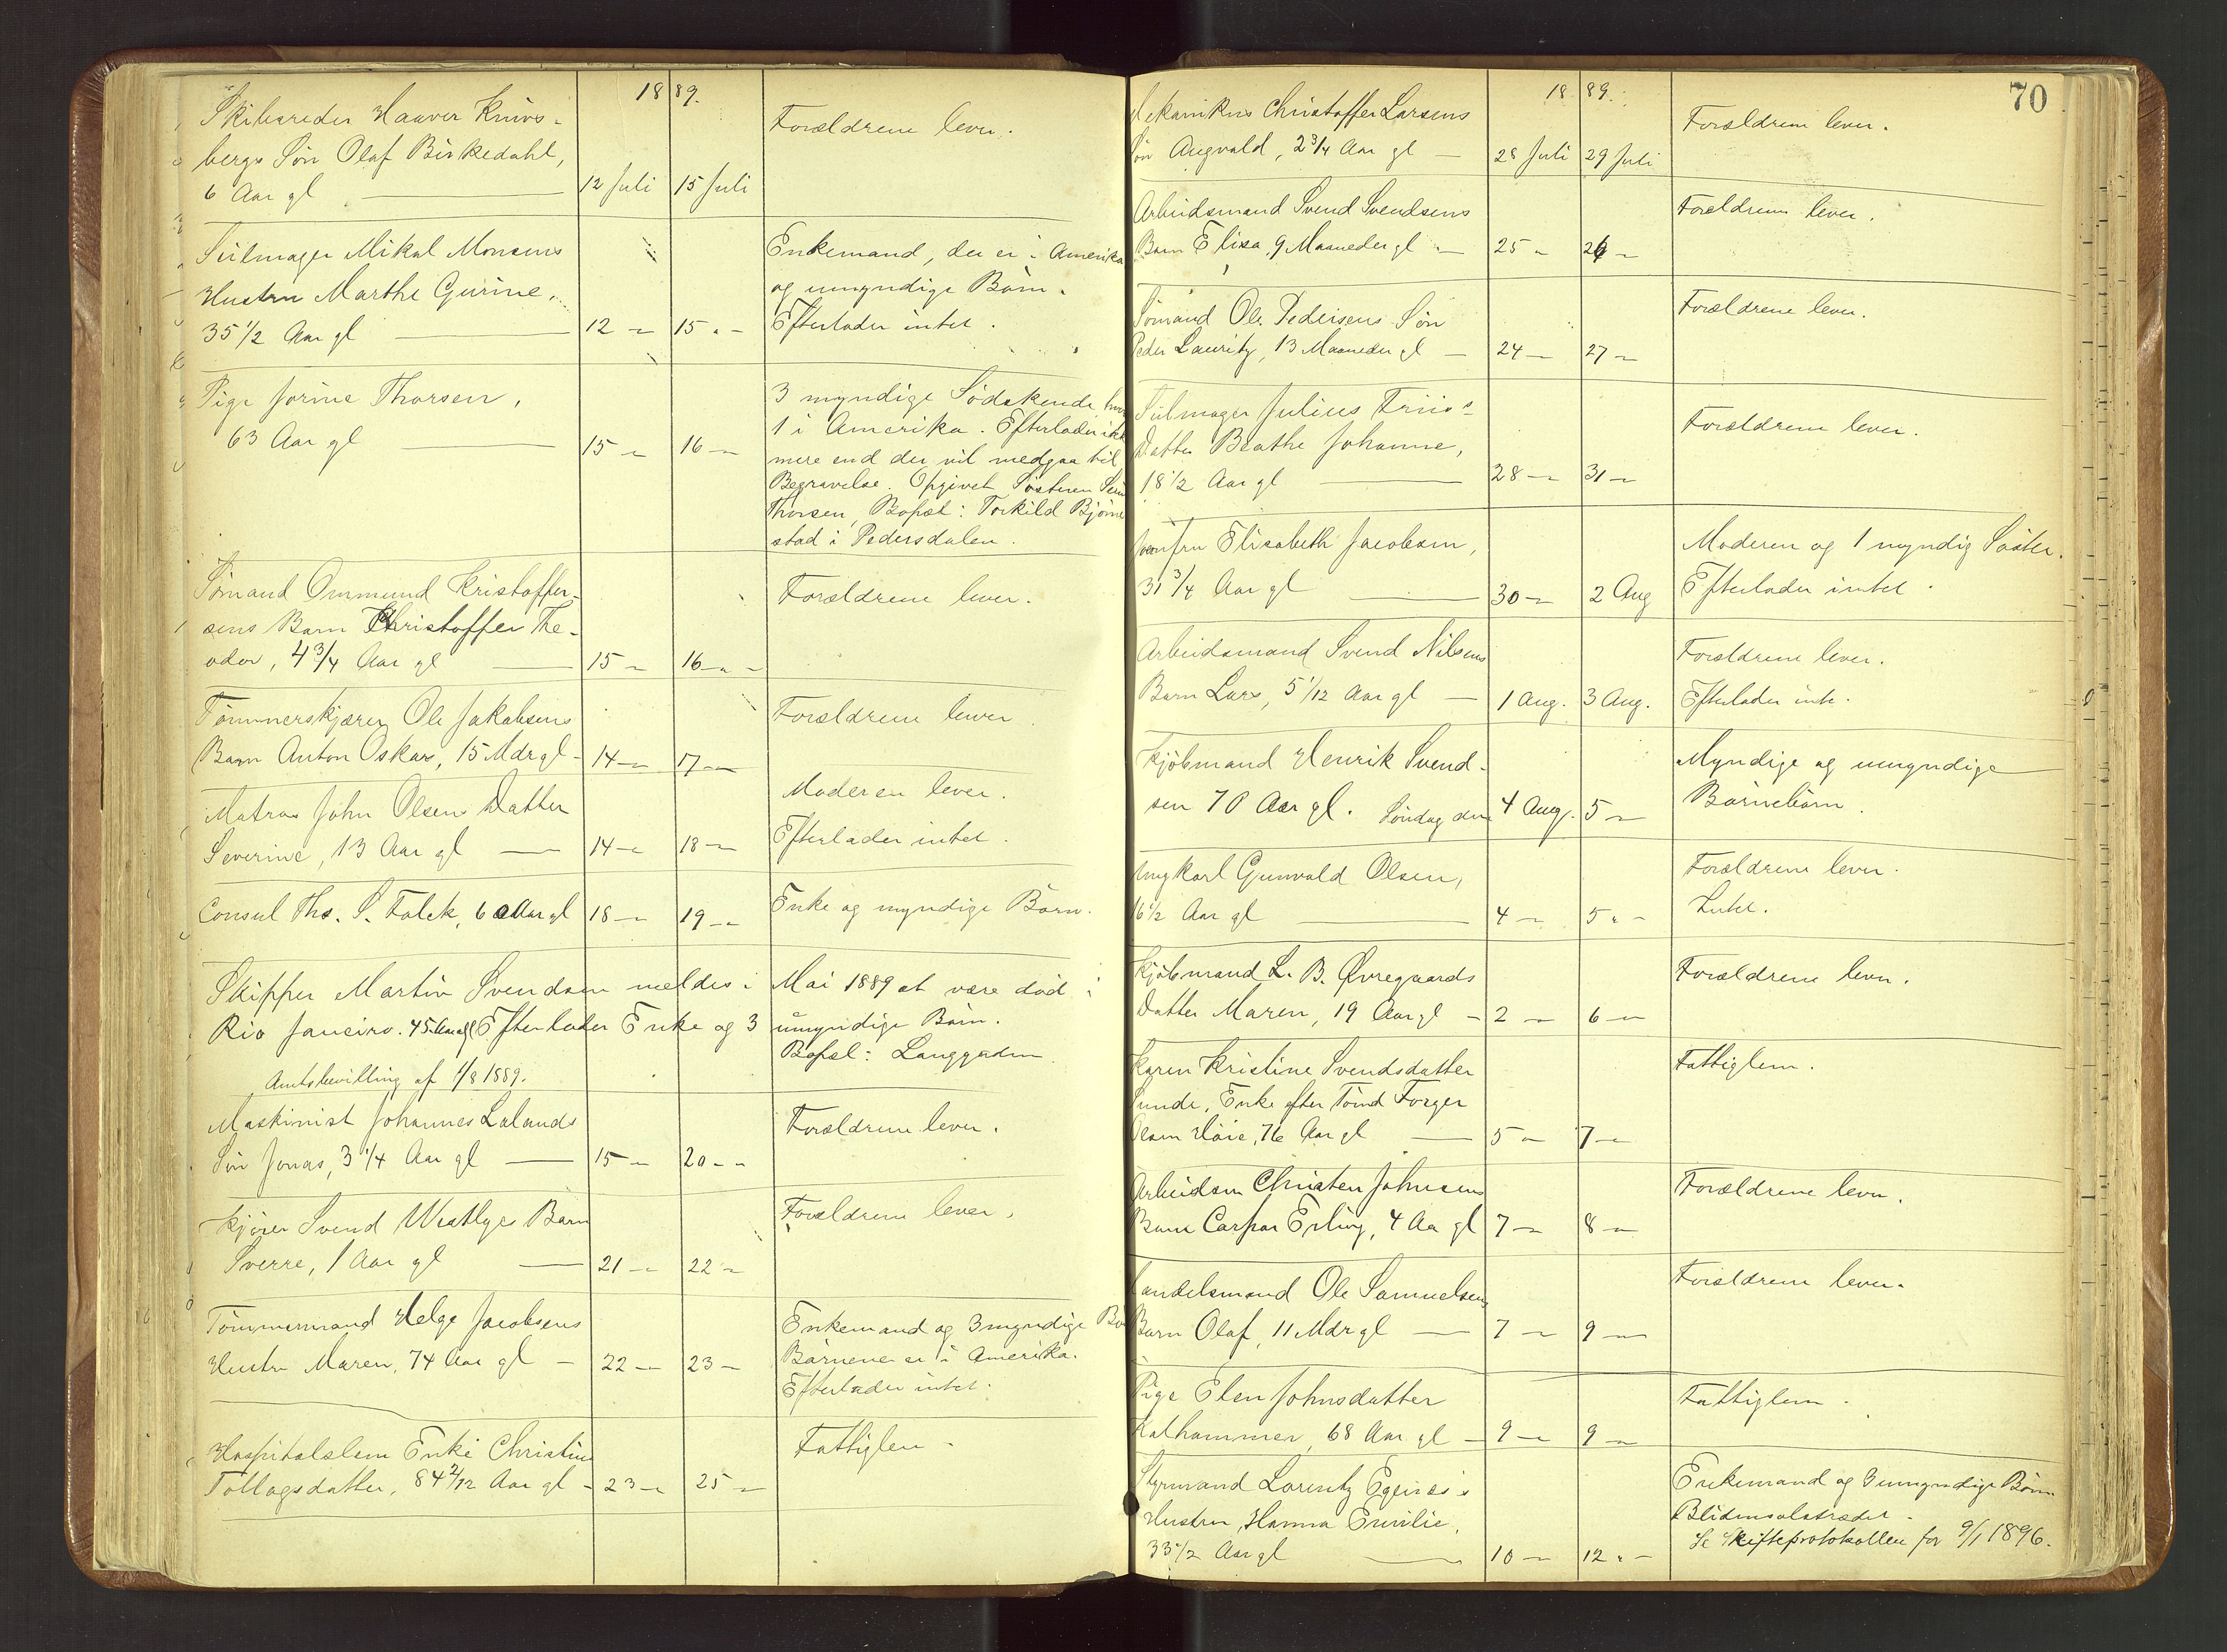 1889.
Skibsreder Haaver Knivs-
bergs Søn Olaf Birkedahl,
6 Aar gl — 12 Juli 15 Juli
Forældrene lever.
Seilmager Mikal Monsens
Hustru Marthe Gurine,
35 1/2 Aar gl — 12 — 15 —
Enkemand, der er i Amerika
og umyndige Børn.
Efterlader intet.
Pige Jorine Thorsen,
63 Aar gl — 15 — 16 —
3 myndige Sødskende, hvor
1 i Amerika. Efterlader ikke
mere end der vil medgaa til
Begravelse. Opgivet Søsteren
Thorsen, Bopæl: Torkild Bjørne
stad i Pedersdalen.
Sømand Ommund Kristoffer-
sens Barn Christoffer The-
odor, 4 3/4 Aar gl — 15 — 16 —
Forældrene lever.
Tømmerskjærer Ole Jakobsens
Barn Anton Oskar, 15 Mdr gl — 14 — 17 —
Forældrene lever.
Matros John Olsens Datter
Severine, 13 Aar gl — 14 — 18 —
Moderen lever.
Efterlader intet.
Consul Ths. S. Falck, 60 Aar gl 18 — 19 —
Enke og myndige Børn.
Skipper Martin Svendsen meldes i Mai 1889 at være død i
Rio Janeiro. 45 Aar gl Efterlader Enke og 3 umyndige Børn.
Bopæl: Langgaden
Amtsbevilling af 1/8 1889.
Maskinist Johannes Lalands
Søn Jonas, 3 1/4 Aar gl — 15 — 20 —
Forældrene lever.
Kjører Svend Westlyes Barn
Sverre, 1 Aar gl — 21 — 22 —
Forældrene lever.
Tømmermand Helge Jacobsens
Hustru Maren, 74 Aar gl — 22 — 23 —
Enkemand og 3 myndige
Børnene er i Amerika.
Efterlader intet.
Hospitalslem Enke Christine
Tollagsdatter, 84 2/12 Aar gl — 23 — 25 —
Fattiglem
1889.
70
Mekanikus Christoffer Larsens
Søn Augvald, 2 3/4 Aar gl — 28 Juli 29 Juli
Forældrene lever.
Arbeidsmand Svend Svendsens
Barn Elisa, 9 Maaneder gl — 25 — 26 —
Forældrene lever.
Sømand Ole Pedersens Søn
Peder Lauritz, 13 Maaneder gl — 24 — 27 —
Forældrene lever.
Seilmager Julius Friis's
Datter Beathe Johanne,
18 1/2 Aar gl — 28 — 31 —
Forældrene lever.
Jomfru Elisabeth Jacobsen,
31 3/4 Aar gl — 30 — 2 Aug
Moderen og 1 myndig Søster.
Efterlader intet.
Arbeidsmand Svend Nilsens
Barn Lars, 5 1/12 Aar gl — 1 Aug. 3 Aug.
Forældrene lever.
Efterlader inte.
Kjøbmand Henrik Svend-
sen 70 Aar gl. Søndag den 4 Aug. 5 —
Myndige og umyndige
Børnebørn.
Ungkarl Gunvald Olsen,
16 1/2 Aar gl — 4 — 5 —
Forældrene lever.
Intet.
Kjøbmand L. B. Øvregaards
Datter Maren, 19 Aar gl — 2 — 6 —
Forældrene lever.
Karen Kristine Svendsdatter
Sunde, Enke efter Tømd Forger
Olsen Høie, 76 Aar gl — 5 — 7 —
Fattiglem.
Arbeidsm Christen Johnsens
Barn Caspar Erling, 4 Aar gl 7 — 8 —
Forældrene lever.
Handelsmand Ole Samuelsens
Barn Olaf, 11 Mdr gl — 7 — 9 —
Forældrene lever.
Pige Elen Johnsdatter
Kalhammer, 68 Aar gl — 9 — 9 —
Fattiglem.
Styrmand Lorentz Egenæs's
Hustru, Hanna Emilie,
33 1/2 Aar gl — 10 — 12 —
Enkemand og 3 umyndige Børn
Blidensolstrædet.
Se Skifteprotokollen for 9/1 1896.